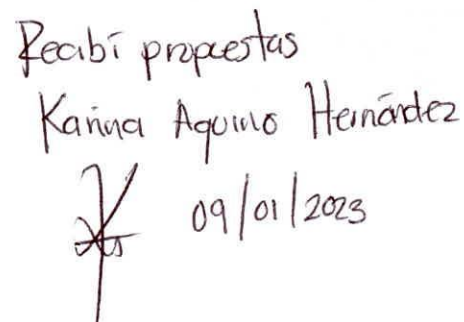 Recibí propuestas
Karina Aquino Hernández
09/01/2023